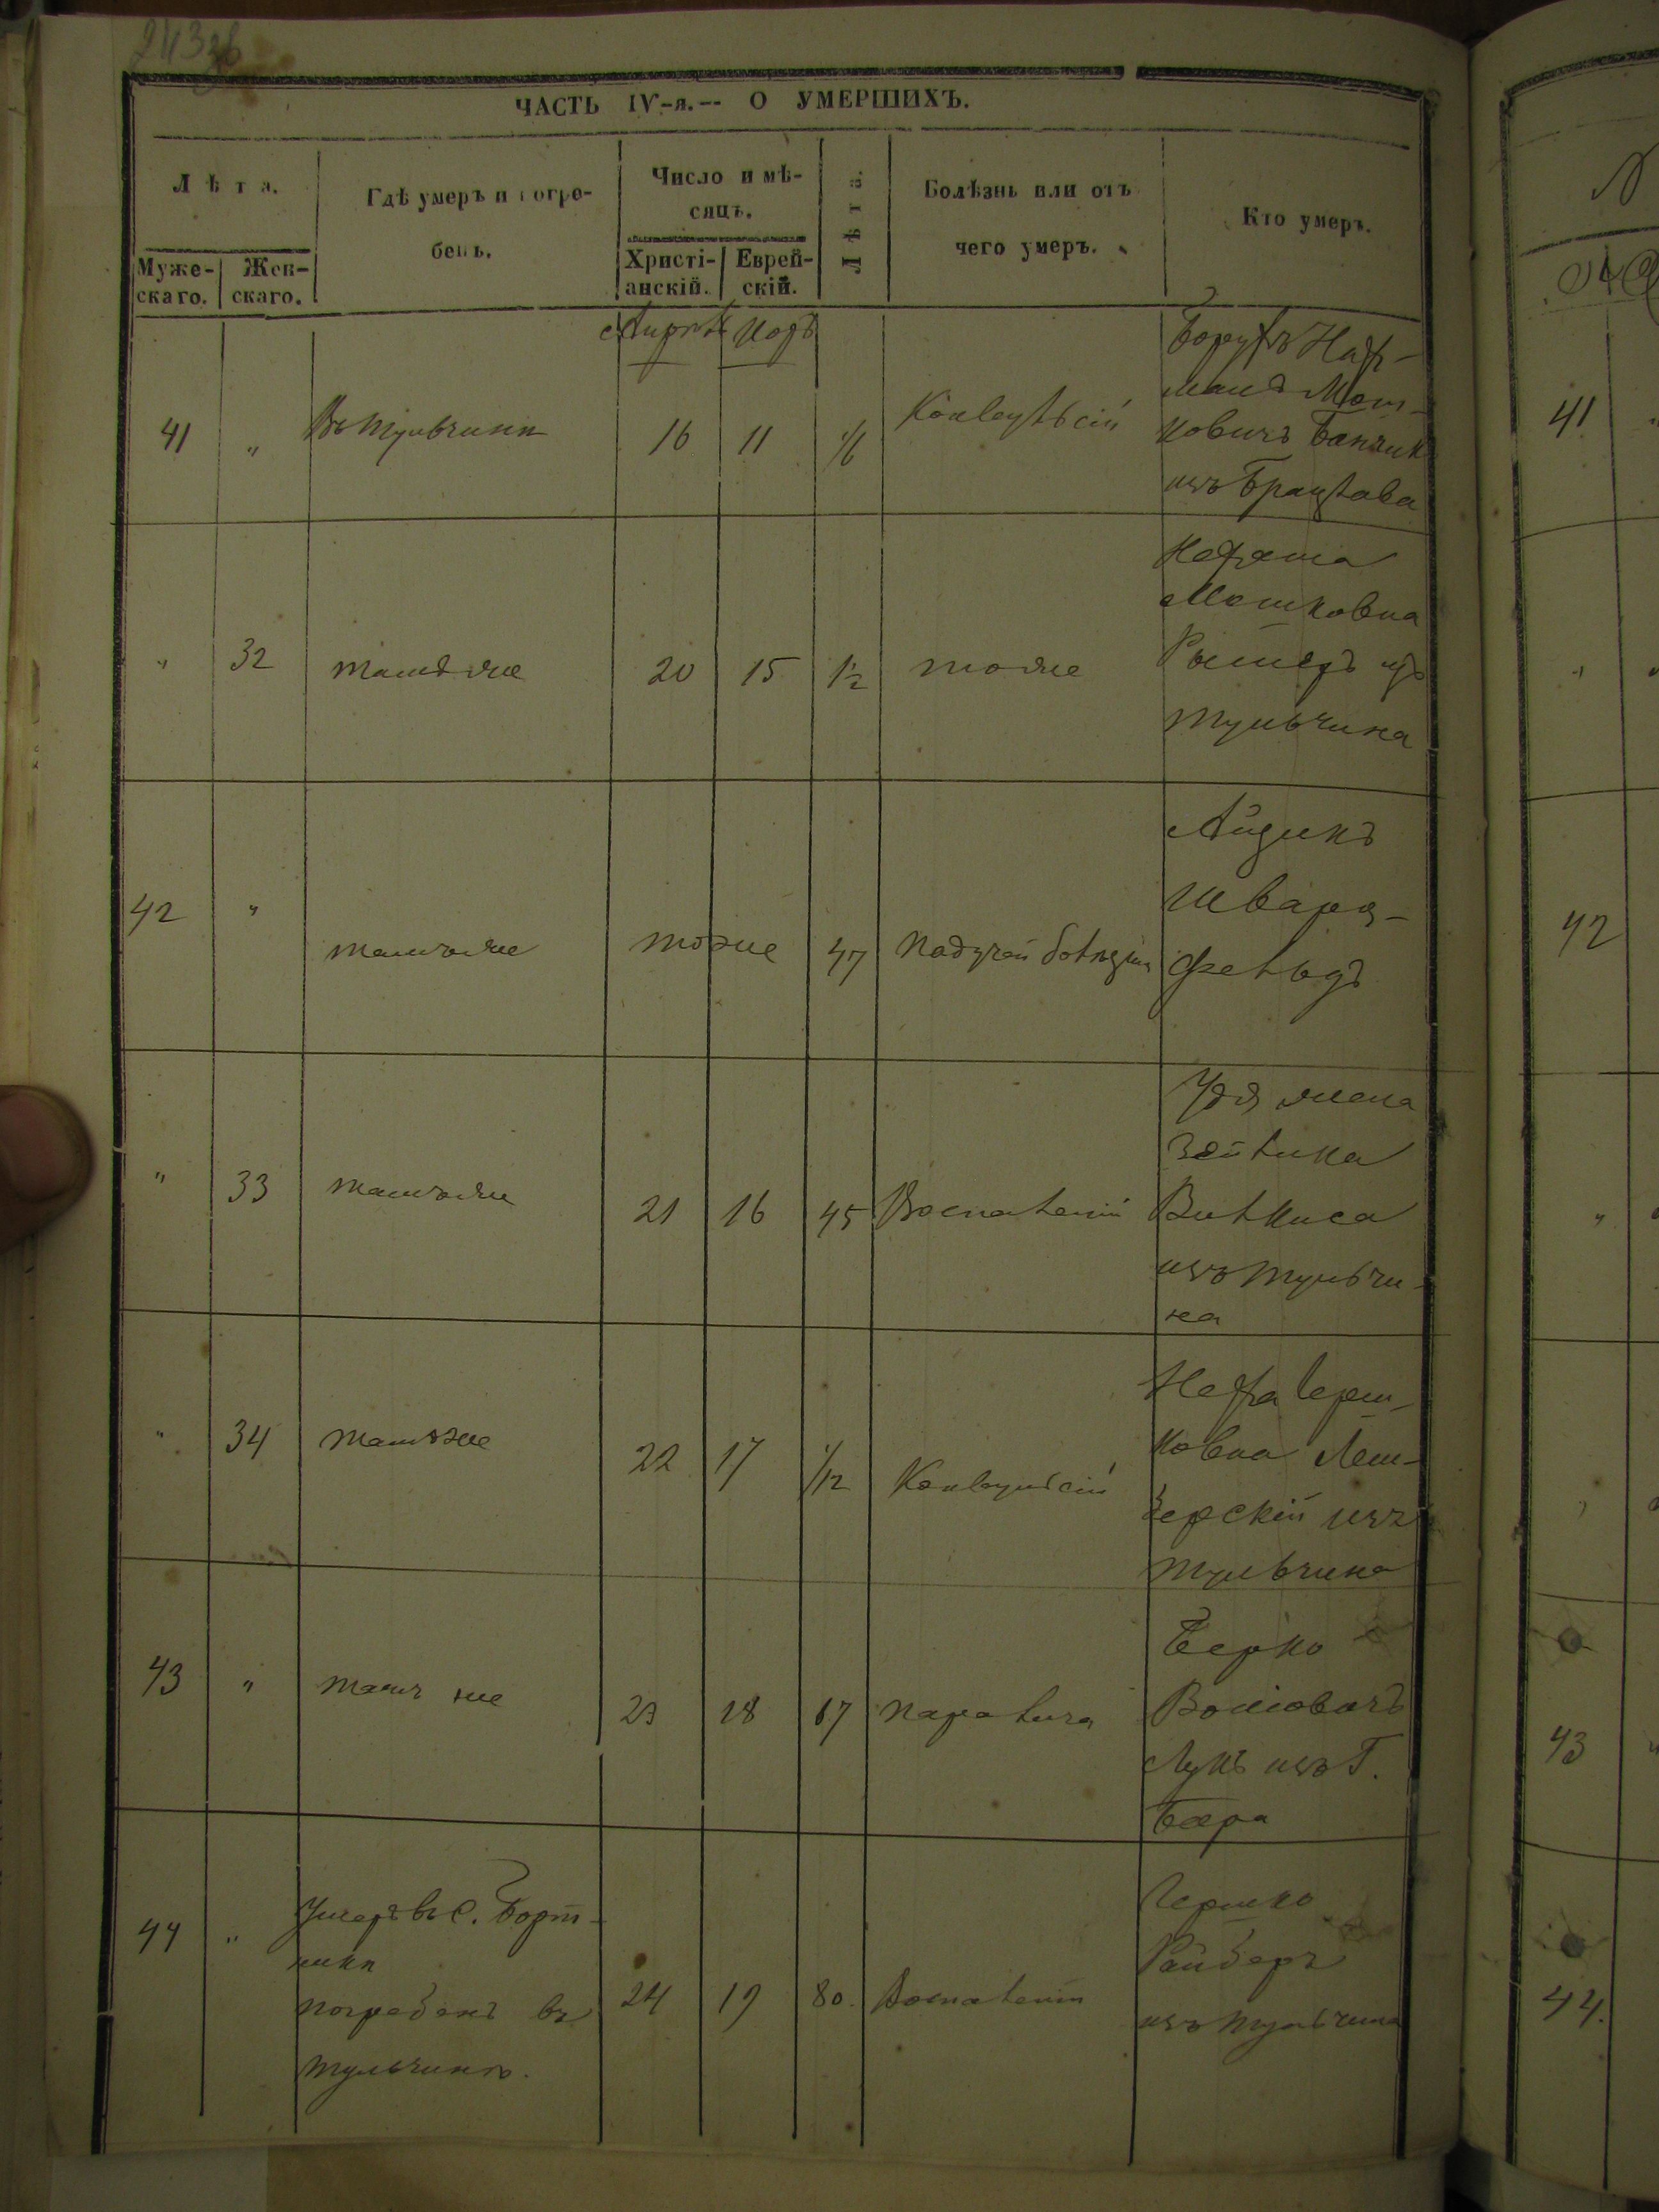 243
ЧАСТЬ IV-я.-- О УМЕРШИХЪ.
Лѣта.
Муже-
скаго.
Жен-
скаго.
Гдѣ умеръ и погре-
бенъ.
Число и мѣ-
сяцъ.
Христі-
анскій.
Еврей-
скій.
Лѣта.
Болѣзнь или отъ
чего умеръ.
Кто умеръ.
41 „ Въ Тульчинѣ 16 11 1/6 Конвульсіи
Борухъ Нах-
манъ Мош-
ковичъ
изъ Брацлава
„ 32 тамъже 20 15 1½ тоже
Мошковна
изъ
Тульчина
42 „ тамъже тоже 47 Падучей болѣзни
Айзикъ
Шварц-
фельдъ
„ 33 тамъже 21 16 45 Воспаленія
жена
Зейлика
Вилкиса
изъ Тульчи-
на
„ 34 тамъже 22 17 1/12 Конвульсіи
Хефа Герш-
ковна
изъ
Тульчина
43 „ тамъ же 23 18 67 паралича
Берко
Волковичъ
изъ Г.
Бара
44 „ Умеръ въ С. Борт-
никѣ
погребенъ въ
Тульчинѣ.
24 19 80. Воспаленія
Гершко
Райберъ
изъ Тульчина
41
42
43
44.